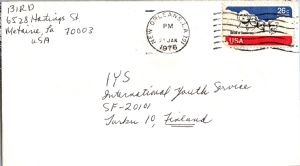 BIRD
6528 Hastings St
Metairie, La 70003
USA
NEW ORLEANS, LA 701
PM
21 JAN
1976
26c
USA
IYS
International Youth Service
SF-20101
Turku 10, Finland